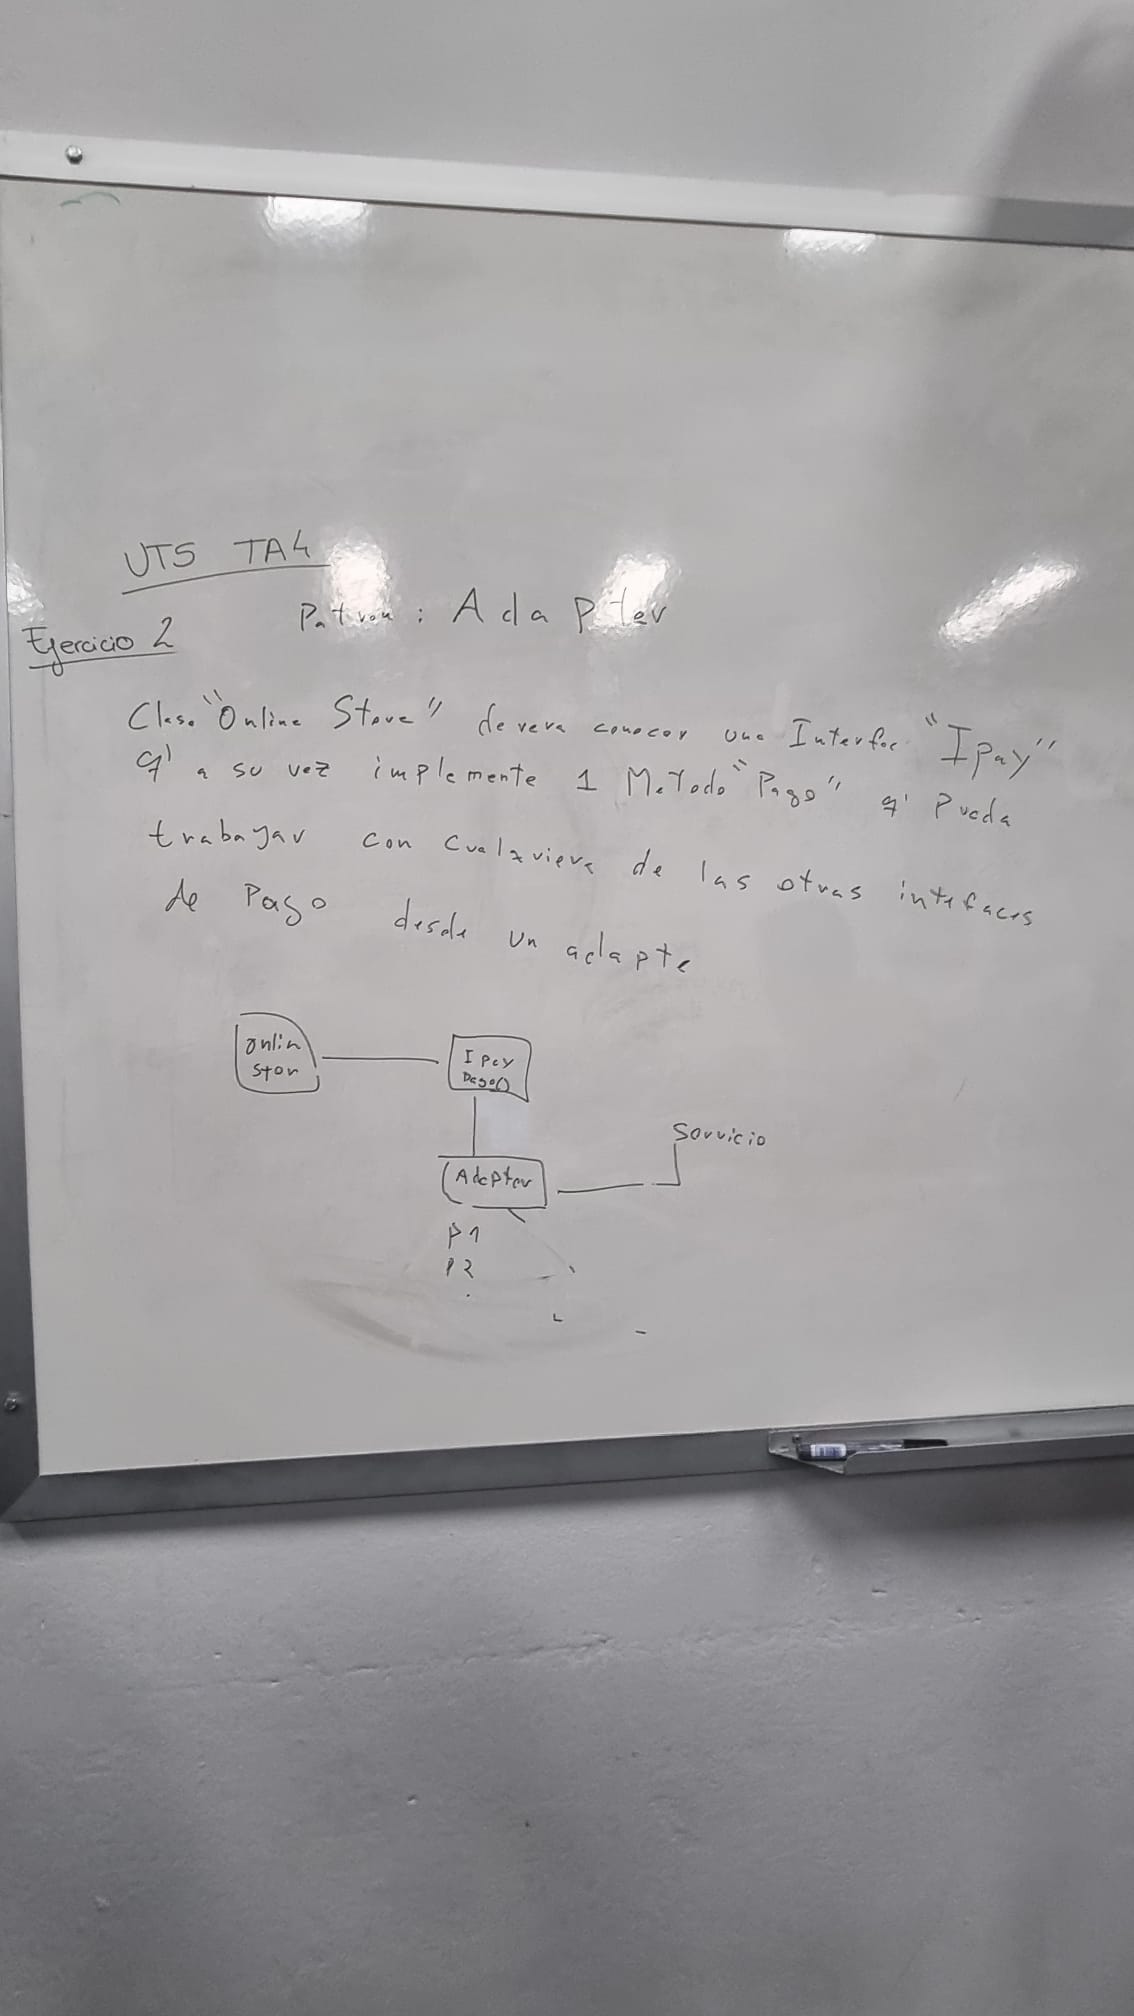 UT5 TA4
Patron: Adapter
Ejercicio 2
Clase "Online Store" devera conocer una Interfac "Ipay"
q' a su vez implemente 1 Metodo "Pago" q' Pueda
trabayar con cualquiera de las otras intefaces
de Pago desde un adapte
Onlin
Stor
Ipay
Pago()
Adapter
Servicio
P1
P2